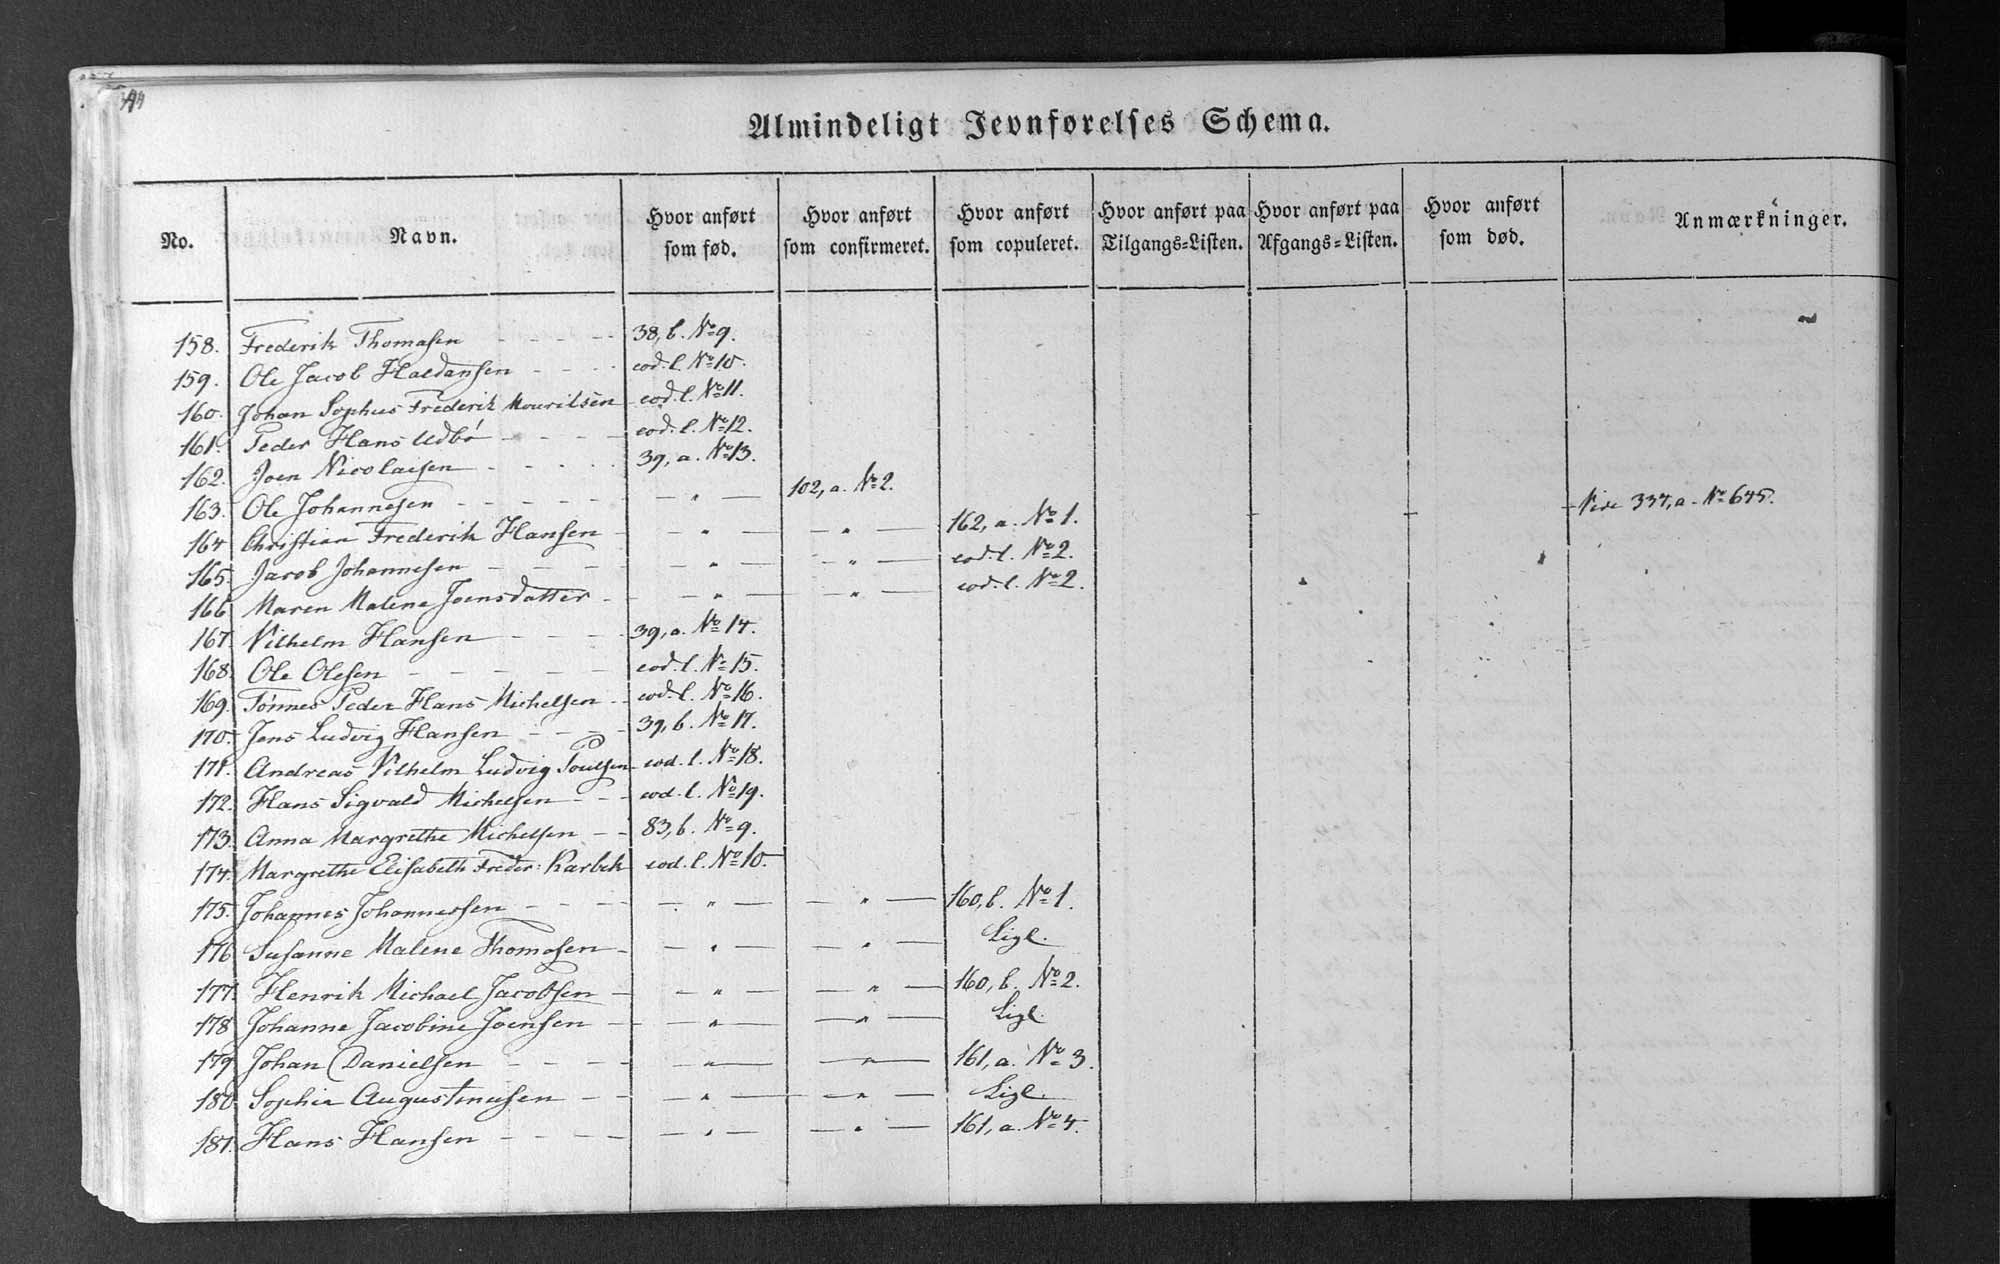 Almindeligt Jevnførelses Schema.
No. Navn. Hvor anført som fød. Hvor anført som confirmeret. Hvor anført som copuleret. Hvor anført paa Tilgangs=Listen. Hvor anført paa Afgangs=Listen. Hvor anført som død. Anmærkninger.
158. Frederik Thomasen - - - - 38, b. No 9.
159. Ole Jacob Haldansen - - - eod. l. No 10.
160. Johan Sophus Frederik Mouritsen eod. l. No 11.
161. Peder Hans Udbø - - - - eod. l. No 12.
162. Joen Nicolaisen - - - - 39, a. No 13.
163. Ole Johannesen - - - - — " — 102, a. No 2. Vide 337, a. No 645.
164 Christian Frederik Hansen - — " — — " — 162, a. No 1.
165. Jacob Johannesen - - - - — " — — " — eod. l. No 2.
166 Maren Malene Joensdatter - — " — — " — eod. l. No 2.
167. Vilhelm Hansen - - - - 39, a. No 14.
168. Ole Olesen - - - - - eod. l. No 15.
169. Tønnes Peder Hans Michelsen - eod. l. No 16.
170. Jens Ludvig Hansen - - - - 39, b. No 17.
171. Andreas Vilhelm Ludvig Poulsen eod. l. No 18.
172. Hans Sigvald Michelsen - - - eod. l. No 19.
173. Anna Margrethe Michelsen - - 83, b. No 9.
174. Margrethe Elisabeth Freder: Karbek eod. l. No 10.
175. Johannes Johannessen - - - — " — — " — 160, b. No 1.
176 Susanne Malene Thomasen - — " — — " — Ligl.
177. Henrik Michael Jacobsen - — " — — " — 160, b. No 2.
178 Johanne Jacobine Joensen - — " — — " — Ligl.
179 Johan Danielsen - - - - — " — — " — 161, a. No 3.
180 Sophie Augustinusen - - — " — — " — Ligl.
181. Hans Hansen - - - - — " — — " — 161, a. No 4.